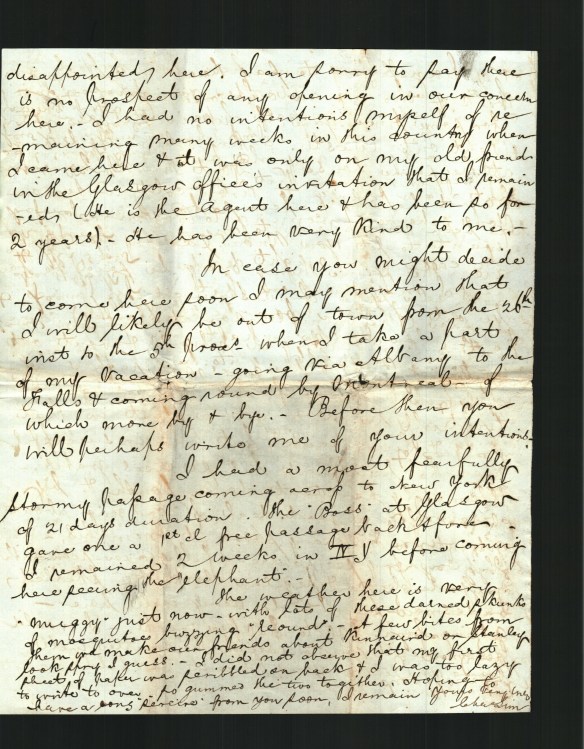 disappointed, here. I am sorry to say there
is no prospect of any opening in our concern
here. - I had no intentions myself of re
-maining many weeks in this country when
I came here & it was only on my old friend
in the Glasgow office's invitation that I remain
-ed, (He is the Agent here & has been so for
2 years). - He has been very kind to me. -
In case you might decide
to come here soon I may mention that
I will likely be out of town from the 26th
inst to the 5th proxo when I take a part
of my vacation - going via Albany to the
Falls & coming round by Montreal - of
which more by & bye. - Before then you
will perhaps write me of your intentions.
I had a most fearfully
stormy passage coming across to New York
of 21 days duration. The "Boss" at Glasgow
gave one a 1st cl free passage back &fore -
I remained 2 weeks in NY before coming
here seeing the "elephant". -
The weather here is very
"muggy" just now - with lots of these darned skunks
of mosquitoes buzzing "reound" - A few bites from
them wd make our friends about Kinnaird or Stanley
look spry I guess. - I did not observe that my first
sheet of paper was scribbled on back & I was too lazy
to write to over, so gummed the two together. Hoping to
have a from you soon, I remain Yours
Chas Sim